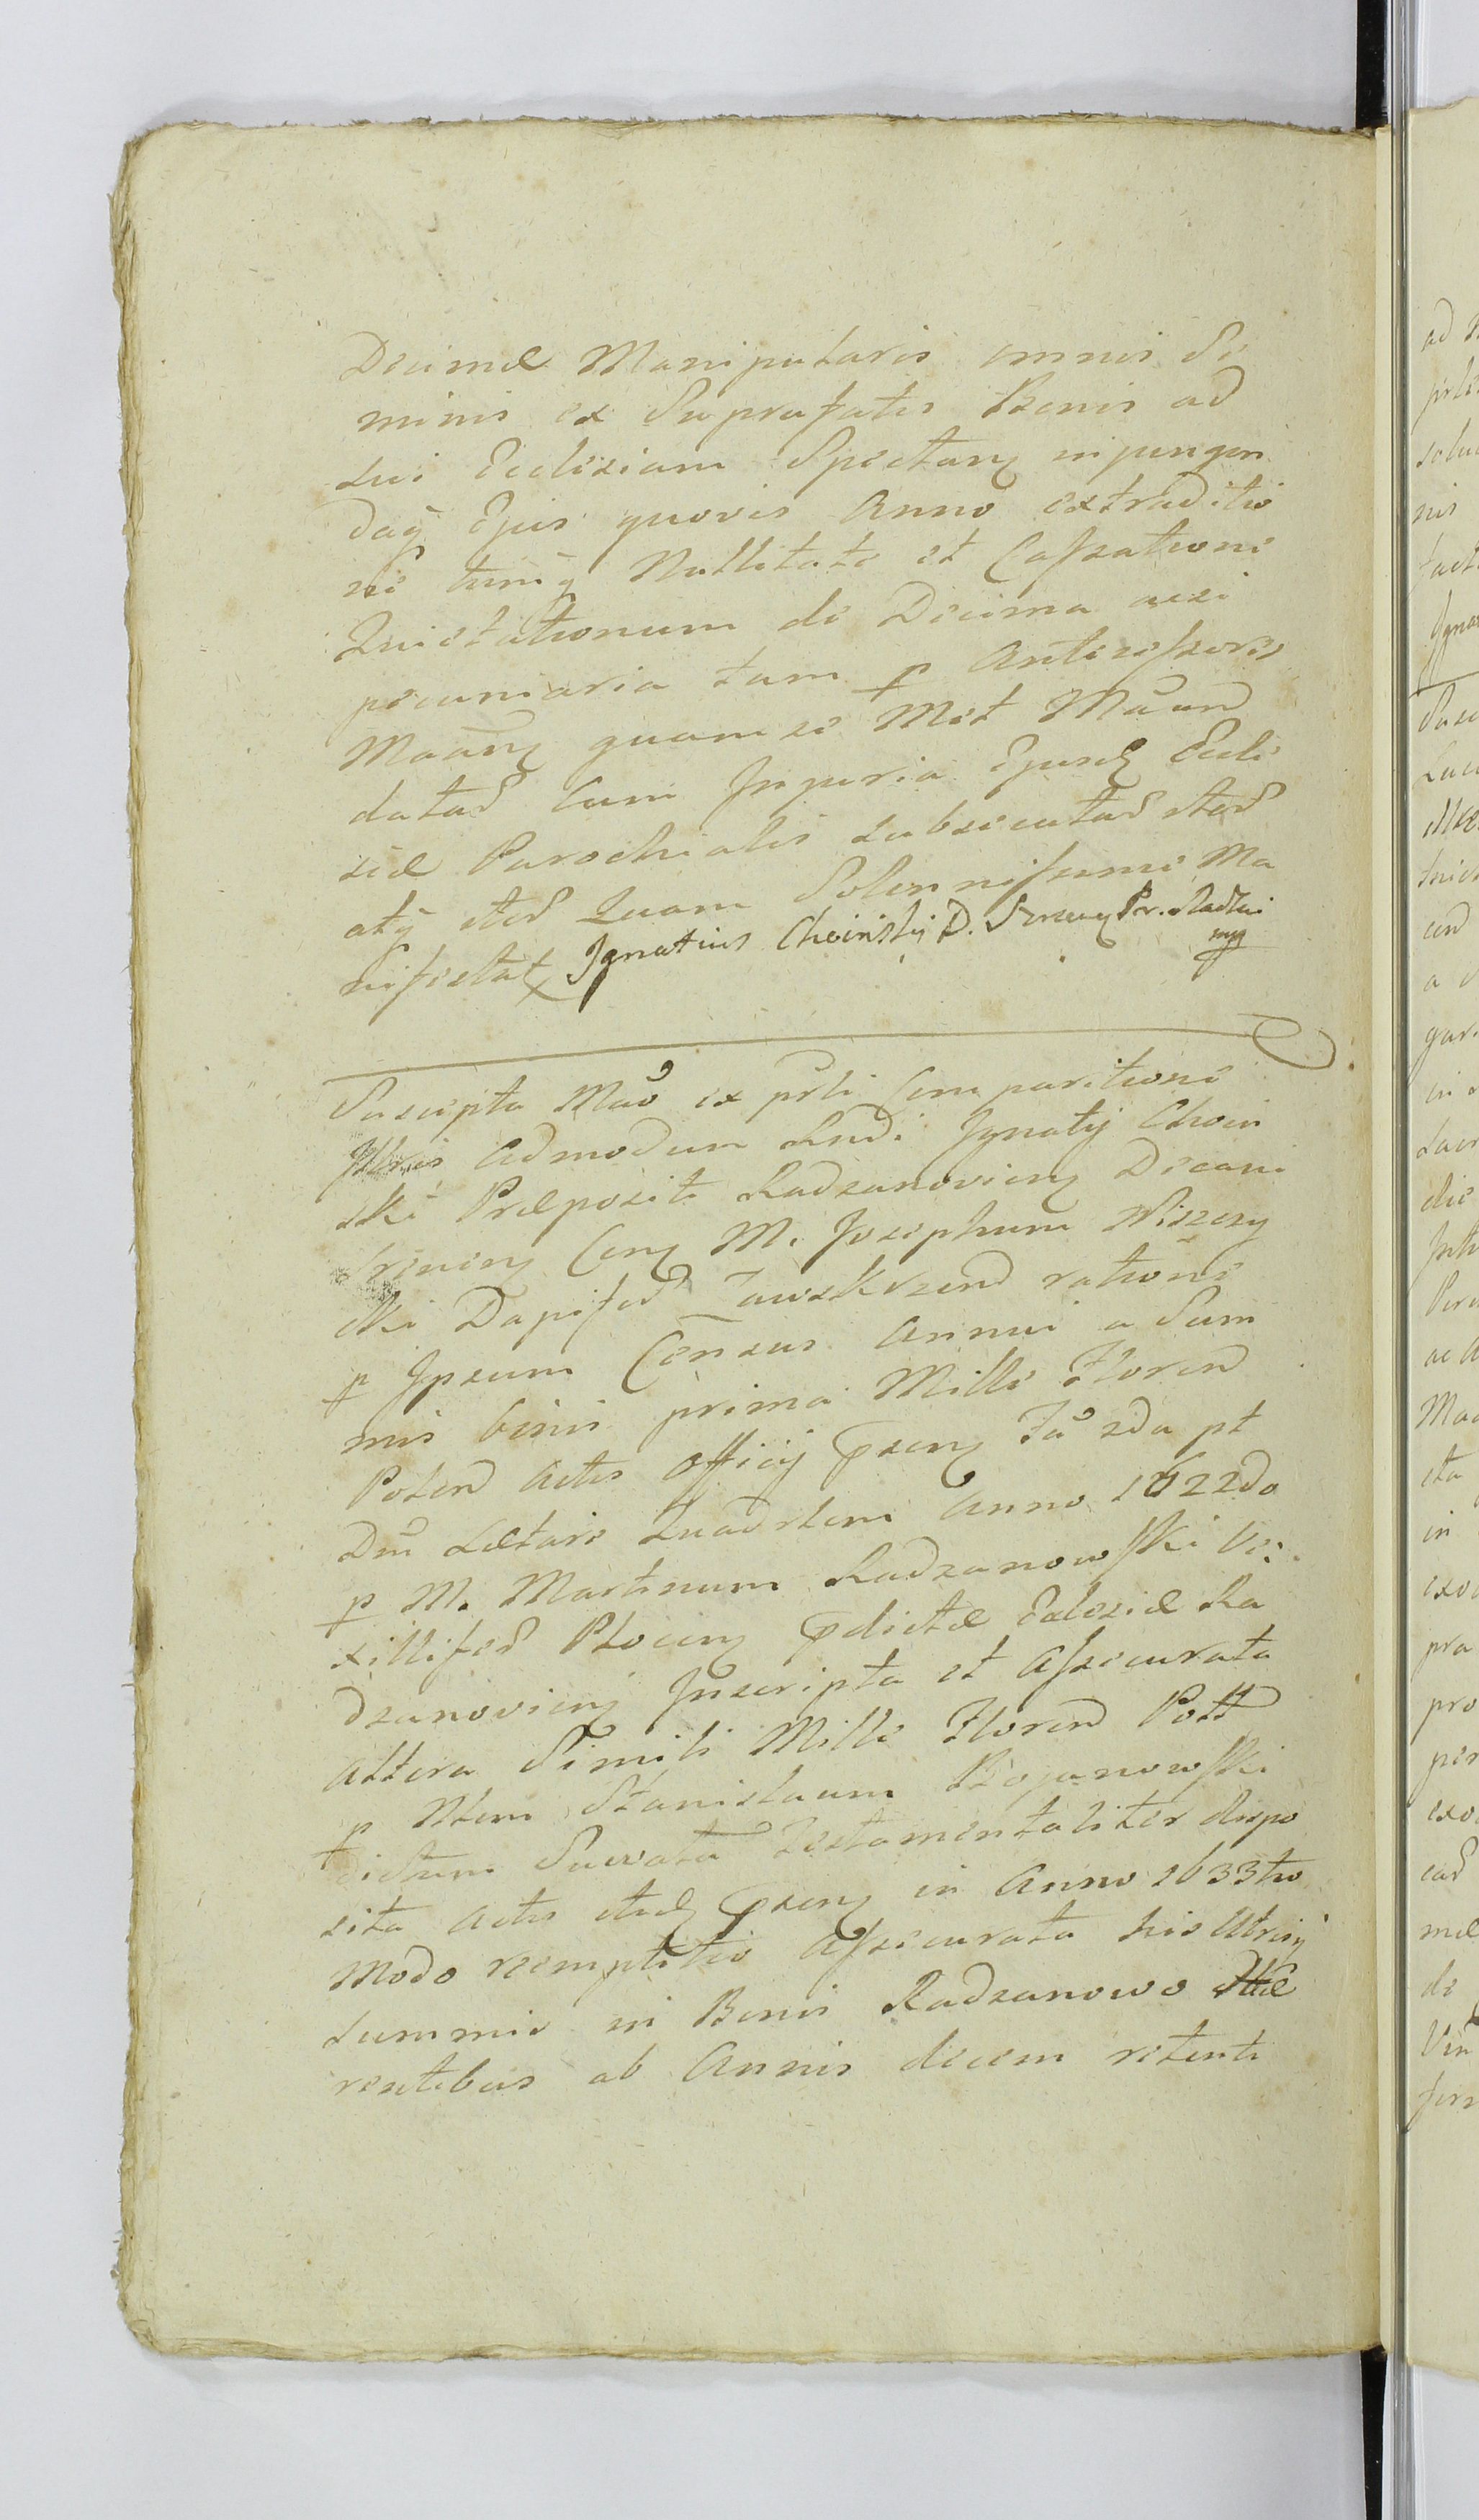 Decimæ Manipularis omnis Se
minis ex Suprafatis Bonis ad
sui Ecclesiam Spectanꝫ injungen
daqꝫ Ejus quovis Anno extraditio
ne tumqꝫ Nullitate et Cassatione
Quietationum de Decima acsi
pecuniaria tam p Antecessores
Maanꝫ quam se Met Maan
datas cum Injuria Ejusdꝫ Eccle
siæ Parochialis subsecutas
Quam Solennissime Ma
nifestatꝫ Ignatius Choinskj D. Srenꝫ Pr. Radzi
mp
Suscepta Mao ex prsti Comparitione
Illris Admodum Rndi Ignatij Choin
ski Præpositi Radzanoviens Decani
Srenens Cons M. Josephum Niszczy
cki Dapifer Zawskrzens ratione
p Ipsum Census Annui a Sum
mis binis prima Mille Floren
Polon Actis Officij psens Fa 2da pt
Dni Lætare Quadrlem Anno 1622do
p M. Martinum Radzanowski Ve
xillifer Plocens pdictæ Eclesiæ Ra
dzanoviens Inscripta et Assecurata
altera Simili Mille Floren Poll
p Nlem Stanislaum Bojanowski
dictum Testamentaliter dispo
sita Actis psens in Anno 1633tio
Modo reemptitio Assecurata his Utrisqꝫ
summis in Bonis Radzanowo Hæ
rentibus ab Annis decem retenti